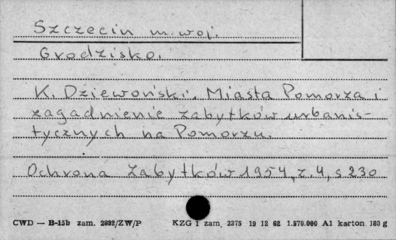 Szczecin m. woj.
Grodzisko.
K. Dziewoński. Miasta Pomorza i
zagadnienie zabytków urbanis-
tycznych na Pomorzu.
Ochrona Zabytków 1954, z. 4, s 230
CWD — B-15b zam. 2892/ZW/P KZG 1 zam. 2375 19 12 62 1.570.000 A1 karton 180 g